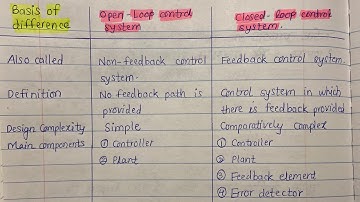 Basis of difference
Open-Loop control system
Closed-loop control system.
Also called
Non-feedback control system.
Feedback control system.
Definition
No feedback path is provided
Control system in which there is feedback provided
Design Complexity
Simple
Comparatively complex
Main components
① Controller
② Plant
① Controller
② Plant
③ Feedback element
④ Error detector